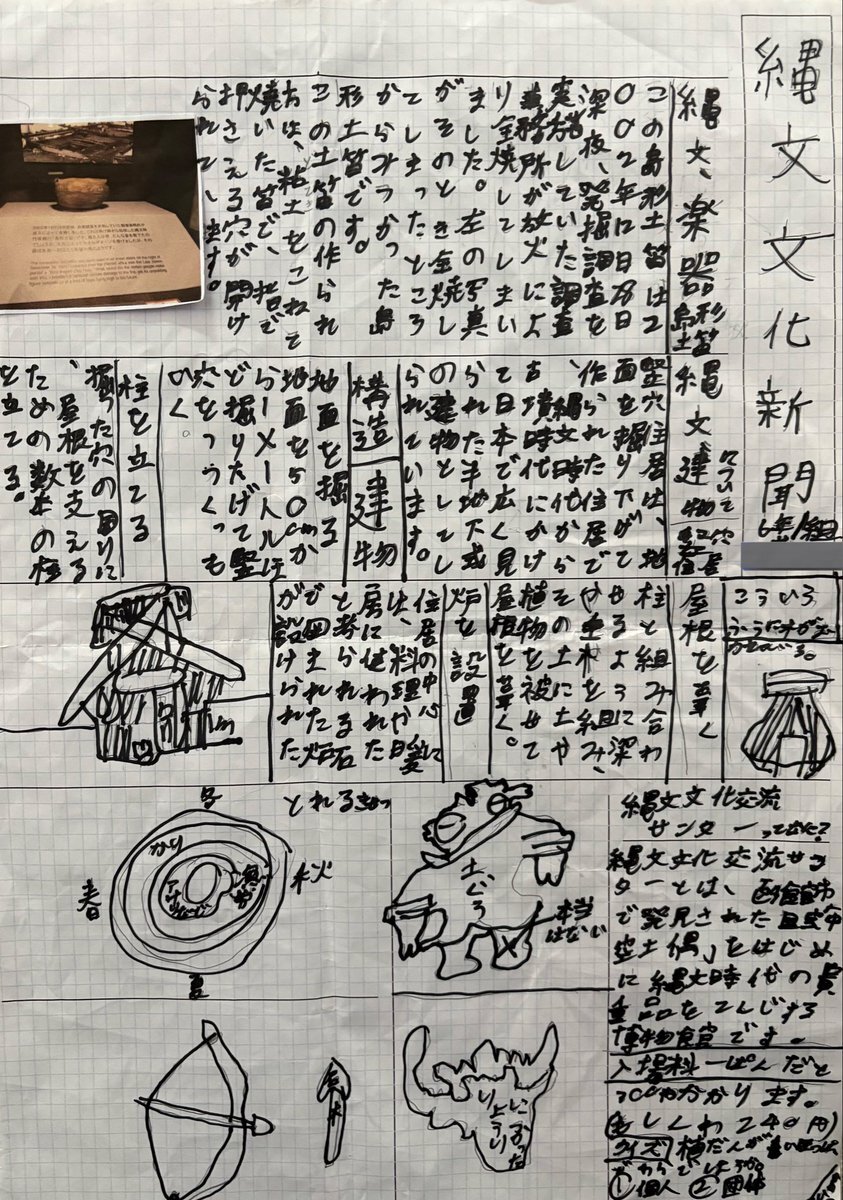 縄文文化新聞
縄文、楽器
鳥形土笛
この鳥形土笛は2
002年12月28日
深夜、発掘調査を
実施していた調査
事務所が放火によ
り全焼してしまい
ました。左の写真
がそのとき全焼し
てしまったところ
からみつかった鳥
形土笛です。
この土笛の作られ
方は、粘土をこねて
焼いた笛で、指で
押さえる穴が開け
られています。
縄文、建物
について
竪穴住居
竪穴住居は、地
面を掘り下げて
作られた住居で
、縄文時代から
古墳時代にかけ
て日本で広く見
られた半地下式
の建物として
られています。
構造建物
地面を掘る
地面を50cmか
ら一メートルほ
ど掘りたげて竪
穴をつくっも
いく
柱を立てる
掘った穴の周りに
、屋根を支える
ための数本の柱
を立てる。
こういう
屋根を葺く
柱と組み合わ
せるように深
や垂木を組み、
その上に土や
植物を被せて
屋根を葺く。
炉を設置
住居の中心に
は、料理や暖
房に使われた
と考られる石
で囲まれた炉
が設けられた
とれるきせつ
冬
秋
夏
春
かり
土ぐう
本当
はない
縄文文化交流
センターってなに?
縄文文化交流セン
ターとは、函館市
で発見された国宝「中
空土偶」をはじめ
に縄文時代の貴
重品をてんじする
博物館です。
入場料一ぱんだと
300円かかります。
クイズ
①個人 ②団体
にをった
りょうり